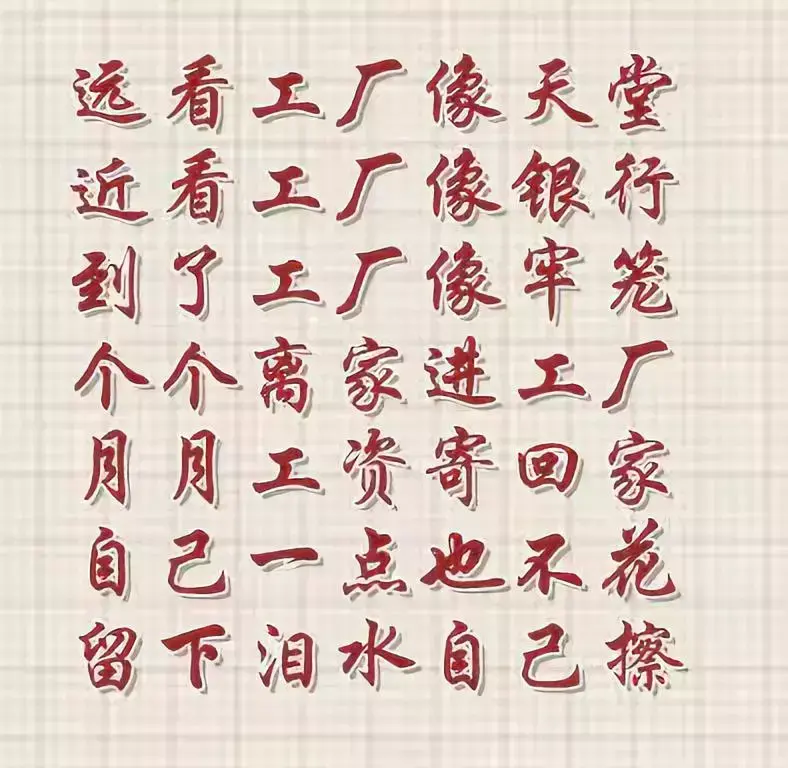 远看工厂像天堂
近看工厂像银行
到了工厂像牢笼
个个离家进工厂
月月工资寄回家
自己一点也不花
留下泪水自己擦